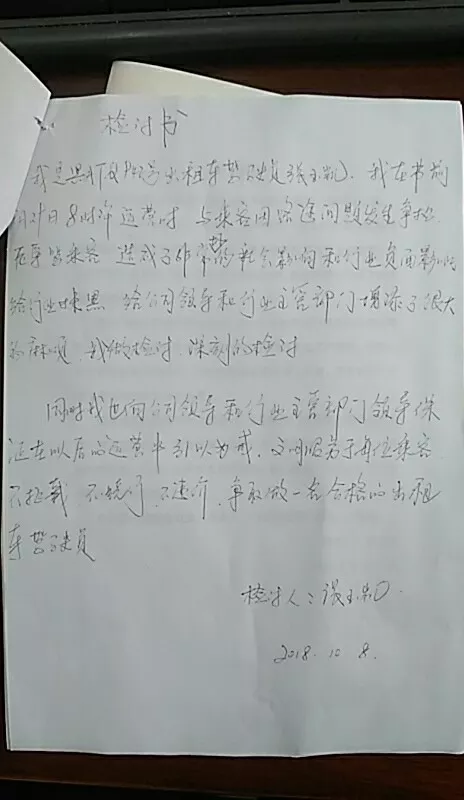 检讨书
我是黑 号出租车驾驶员张玉 。我在书前
8时许运营时 与乘客因路途问题发生争执
在辱骂乘客 造成了非常坏的社会影响和行业负面影响
给行业抹黑 给公司领导和行业主管部门增添了很大
的麻烦 我做检讨 深刻的检讨
同时我也向公司领导和行业主管部门领导保
证在以后的运营中引以为戒,文明服务于每位乘客
不拒载 不绕行 不违价 争取做一名合格的出租
车驾驶员
检讨人:张玉
2018.10 8.